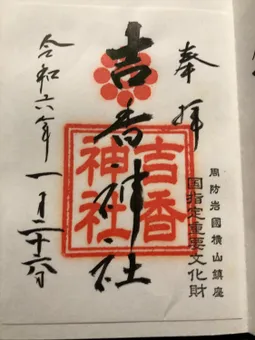 奉拝
周防岩國横山鎮座
国指定重要文化財
吉香神社
吉香
神社
令和六年一月二十六日